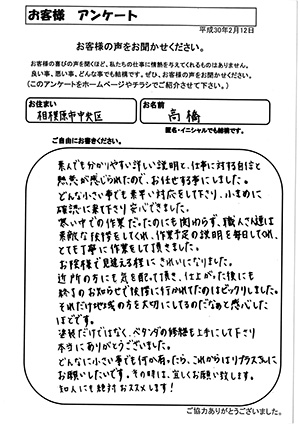 お客様 アンケート
平成30年2月12日
お客様の声をお聞かせください。
お客様の喜びの声を聞くほど、私たちの仕事に情熱を与えてくれるものはありません。
良い事、悪い事、どんな事でも結構です。ぜひ、お客様の声をお聞かせください。
(このアンケートをホームページやチラシでご紹介させて下さい。)
お住まい
相模原市中央区
お名前
高橋
匿名・イニシャルでも結構です。
ご自由にお書きください。
素人でも分かりやすい詳しい説明と、仕事に対する自信と
熱意が感じられたので、お任せする事にしました。
どんな小さい事でも素早い対応をして下さり、小まめに
確認に来て下さり安心できました。
寒い中での作業だったのにも関わらず、職人さん達は
素敵な挨拶をしてくれ、作業予定の説明を毎日してくれ、
とても丁寧に作業をして頂きました。
お陰様で見違える様にきれいになりました。
近所の方にも気を配って頂き、仕上がった後にも
終了のお知らせで挨拶に行かれてたのはビックリしました。
それだけ地域の方を大切にしてるのだなぁと感心した
ほどです。
塗装だけではなく、ベランダの修繕も上手にして下さり
本当にありがとうございました。
どんなに小さい事でも何かあったら、これからはリプラスさんに
お願いしたいです。その時は、宜しくお願い致します。
知人にも絶対おススメします!
ご協力ありがとうございました。